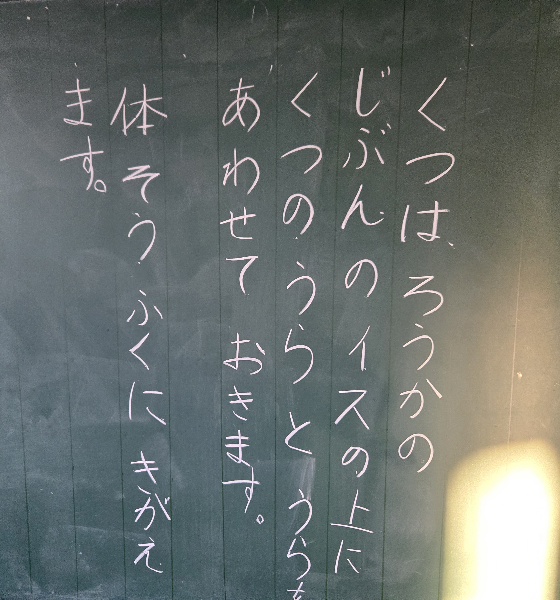 くつは、ろうかの
じぶんの イスの上に
くつのうらと うらを
あわせて おきます。
体そうふくに きがえ
ます。